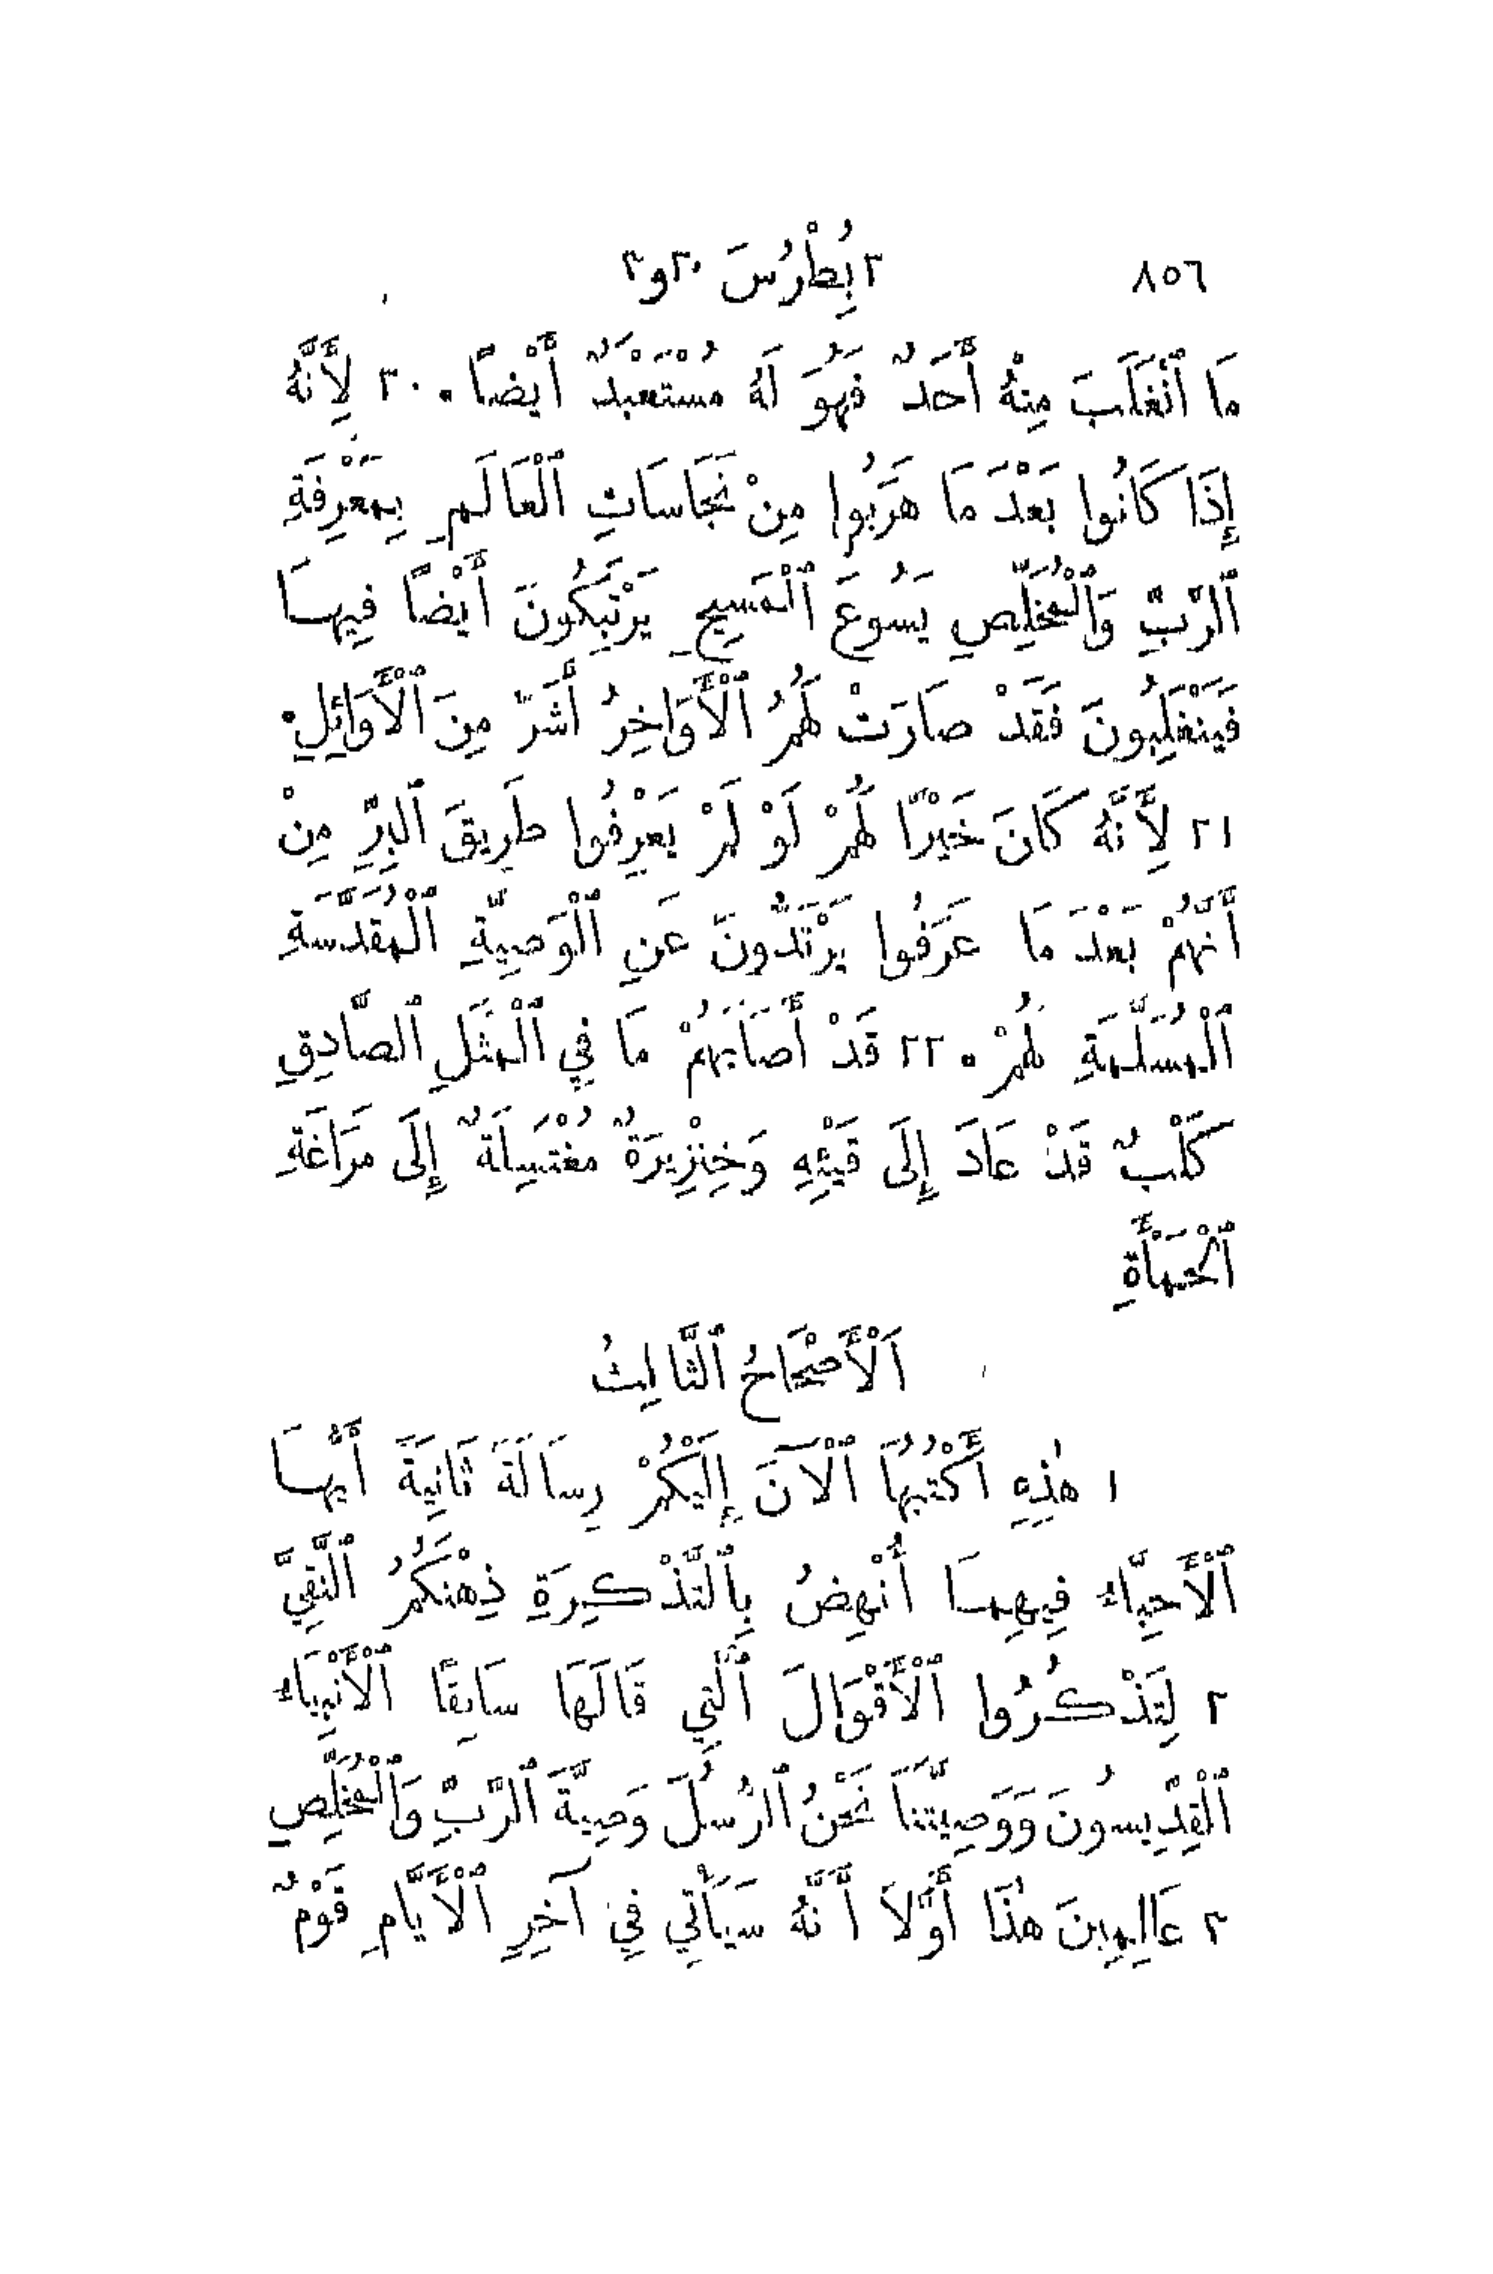 ٨٥٦ ٢ بُطْرُسَ ٢٠و٣
مَا ٱنْغَلَبَ مِنْهُ أَحَدٌ فَهُوَ لَهُ مُسْتَعْبَدٌ أَيْضًا. ٢٠ لِأَنَّهُ
إِذَا كَانُوا بَعْدَ مَا هَرَبُوا مِنْ نَجَاسَاتِ ٱلْعَالَمِ بِمَعْرِفَةِ
ٱلرَّبِّ وَٱلْمُخَلِّصِ يَسُوعَ ٱلْمَسِيحِ يَرْتَبِكُونَ أَيْضًا فِيهَا
فَيَنْغَلِبُونَ فَقَدْ صَارَتْ لَهُمُ ٱلْأَوَاخِرُ أَشَرَّ مِنَ ٱلْأَوَائِلِ.
٢١ لِأَنَّهُ كَانَ خَيْرًا لَهُمْ لَوْ لَمْ يَعْرِفُوا طَرِيقَ ٱلْبِرِّ مِنْ
أَنَّهُمْ بَعْدَ مَا عَرَفُوا يَرْتَدُّونَ عَنِ ٱلْوَصِيَّةِ ٱلْمُقَدَّسَةِ
ٱلْمُسَلَّمَةِ لَهُمْ. ٢٢ قَدْ أَصَابَهُمْ مَا فِي ٱلْمَثَلِ ٱلصَّادِقِ
كَلْبٌ قَدْ عَادَ إِلَى قَيْئِهِ وَخِنْزِيرَةٌ مُغْتَسِلَةٌ إِلَى مَرَاغَةِ
ٱلْحَمْأَةِ
اَلْأَصْحَاحُ ٱلثَّالِثُ
١ هٰذِهِ أَكْتُبُهَا ٱلْآنَ إِلَيْكُمْ رِسَالَةً ثَانِيَةً أَيُّهَا
ٱلْأَحِبَّاءُ فِيهِمَا أُنْهِضُ بِٱلتَّذْكِرَةِ ذِهْنَكُمُ ٱلنَّقِيَّ
٢ لِتَذْكُرُوا ٱلْأَقْوَالَ ٱلَّتِي قَالَهَا سَابِقًا ٱلْأَنْبِيَاءُ
ٱلْقِدِّيسُونَ وَوَصِيَّتَنَا نَحْنُ ٱلرُّسُلَ وَصِيَّةَ ٱلرَّبِّ وَٱلْمُخَلِّصِ
٣ عَالِمِينَ هٰذَا أَوَّلًا أَنَّهُ سَيَأْتِي فِي آخِرِ ٱلْأَيَّامِ قَوْمٌ